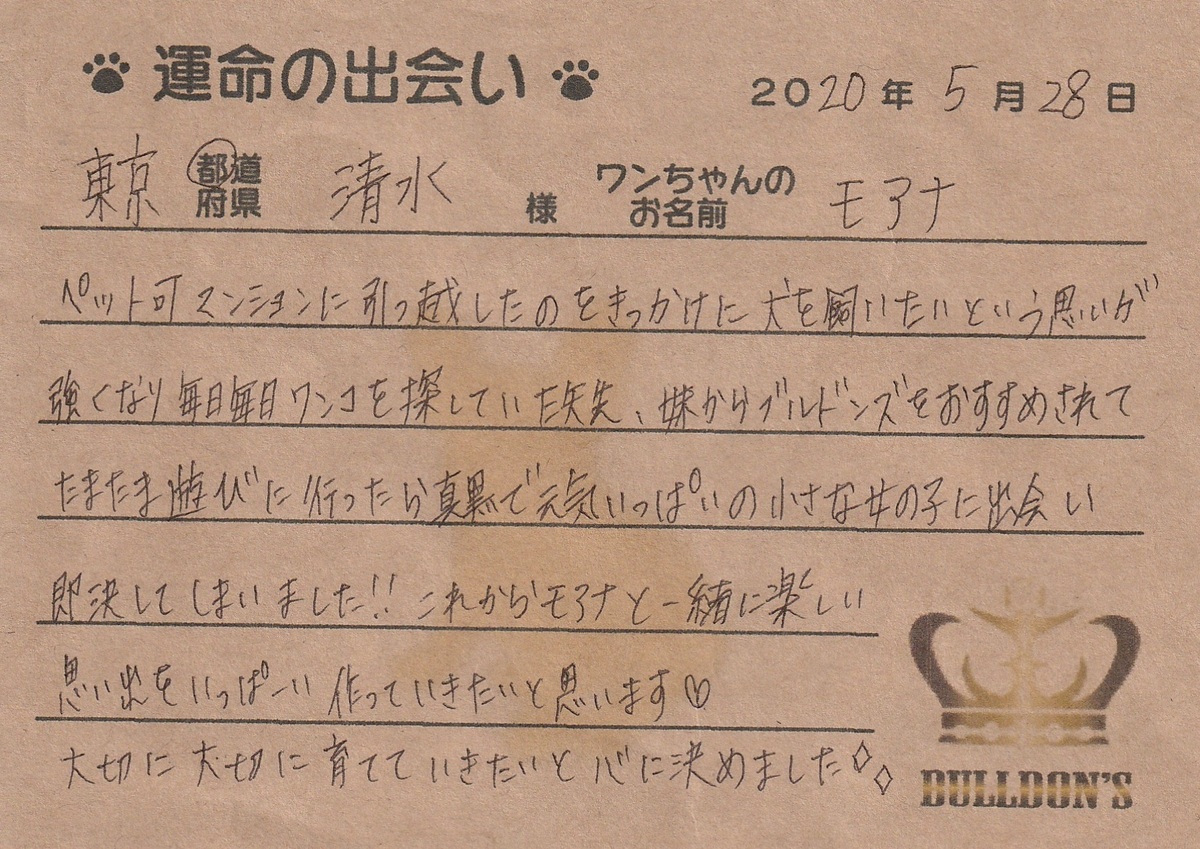 運命の出会い 2020年 5月28日
東京 都道府県 清水 様 ワンちゃんのお名前 モアナ
ペット可マンションに引っ越したのをきっかけに犬を飼いたいという思いが
強くなり毎日毎日ワンコを探していた矢先、妹からブルドンズをおすすめされて
たまたま遊びに行ったら真黒で元気いっぱいの小さな女の子に出会い
即決してしまいました!! これからモアナと一緒に楽しい
思い出をいっぱーい作っていきたいと思います♡
大切に大切に育てていきたいと心に決めました◇◇
BULLDON'S